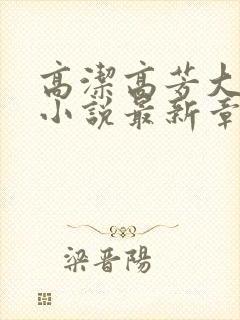 高潔高芳大
小說最新章
梁晋陽